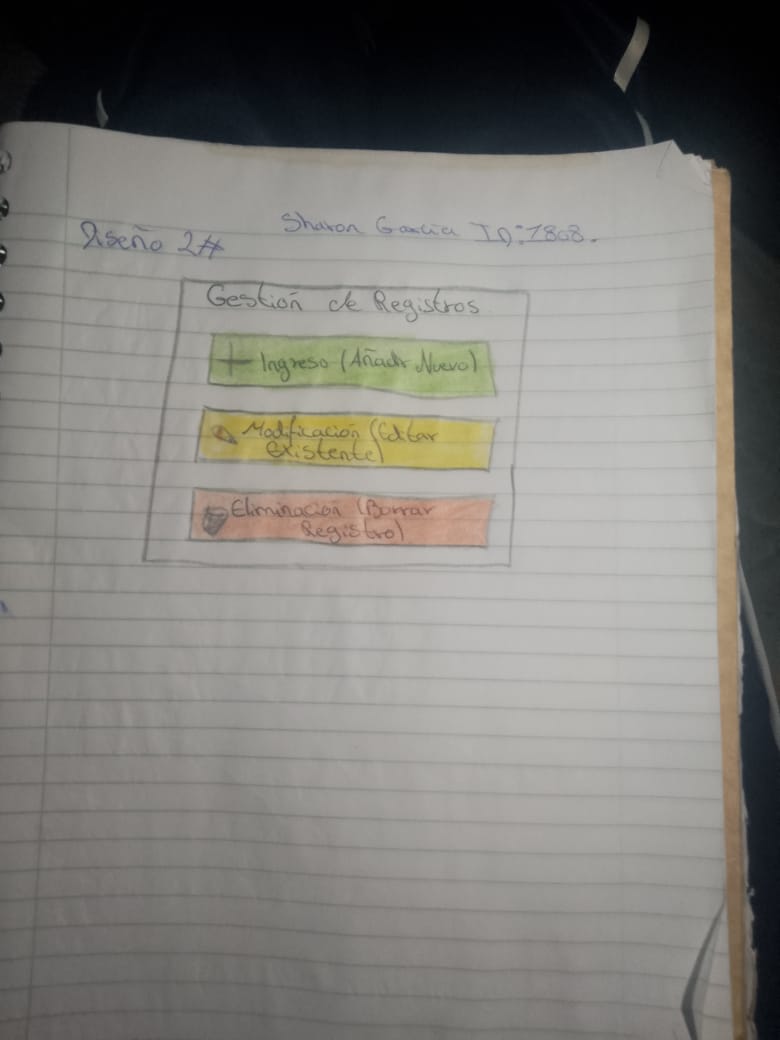 Diseño 2#
Sharon Garcia ID:1808.
Gestión de Registros
+ Ingreso (Añadir Nuevo)
Modificación (Editar
existente)
Eliminación (Borrar
Registro)